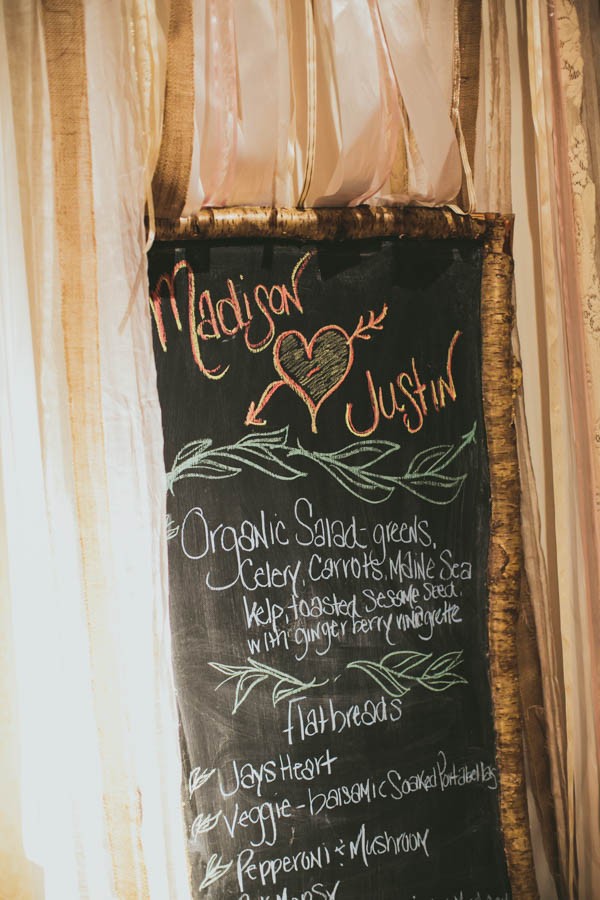 Madison
Justin
Organic Salad- greens,
Celery, Carrots, Maine Sea
kelp, toasted Sesame Seed,
with ginger berry vinigrette
flatbreads
Jays Heart
Veggie - balsamic Soaked Portabellas
Pepperoni & Mushroom